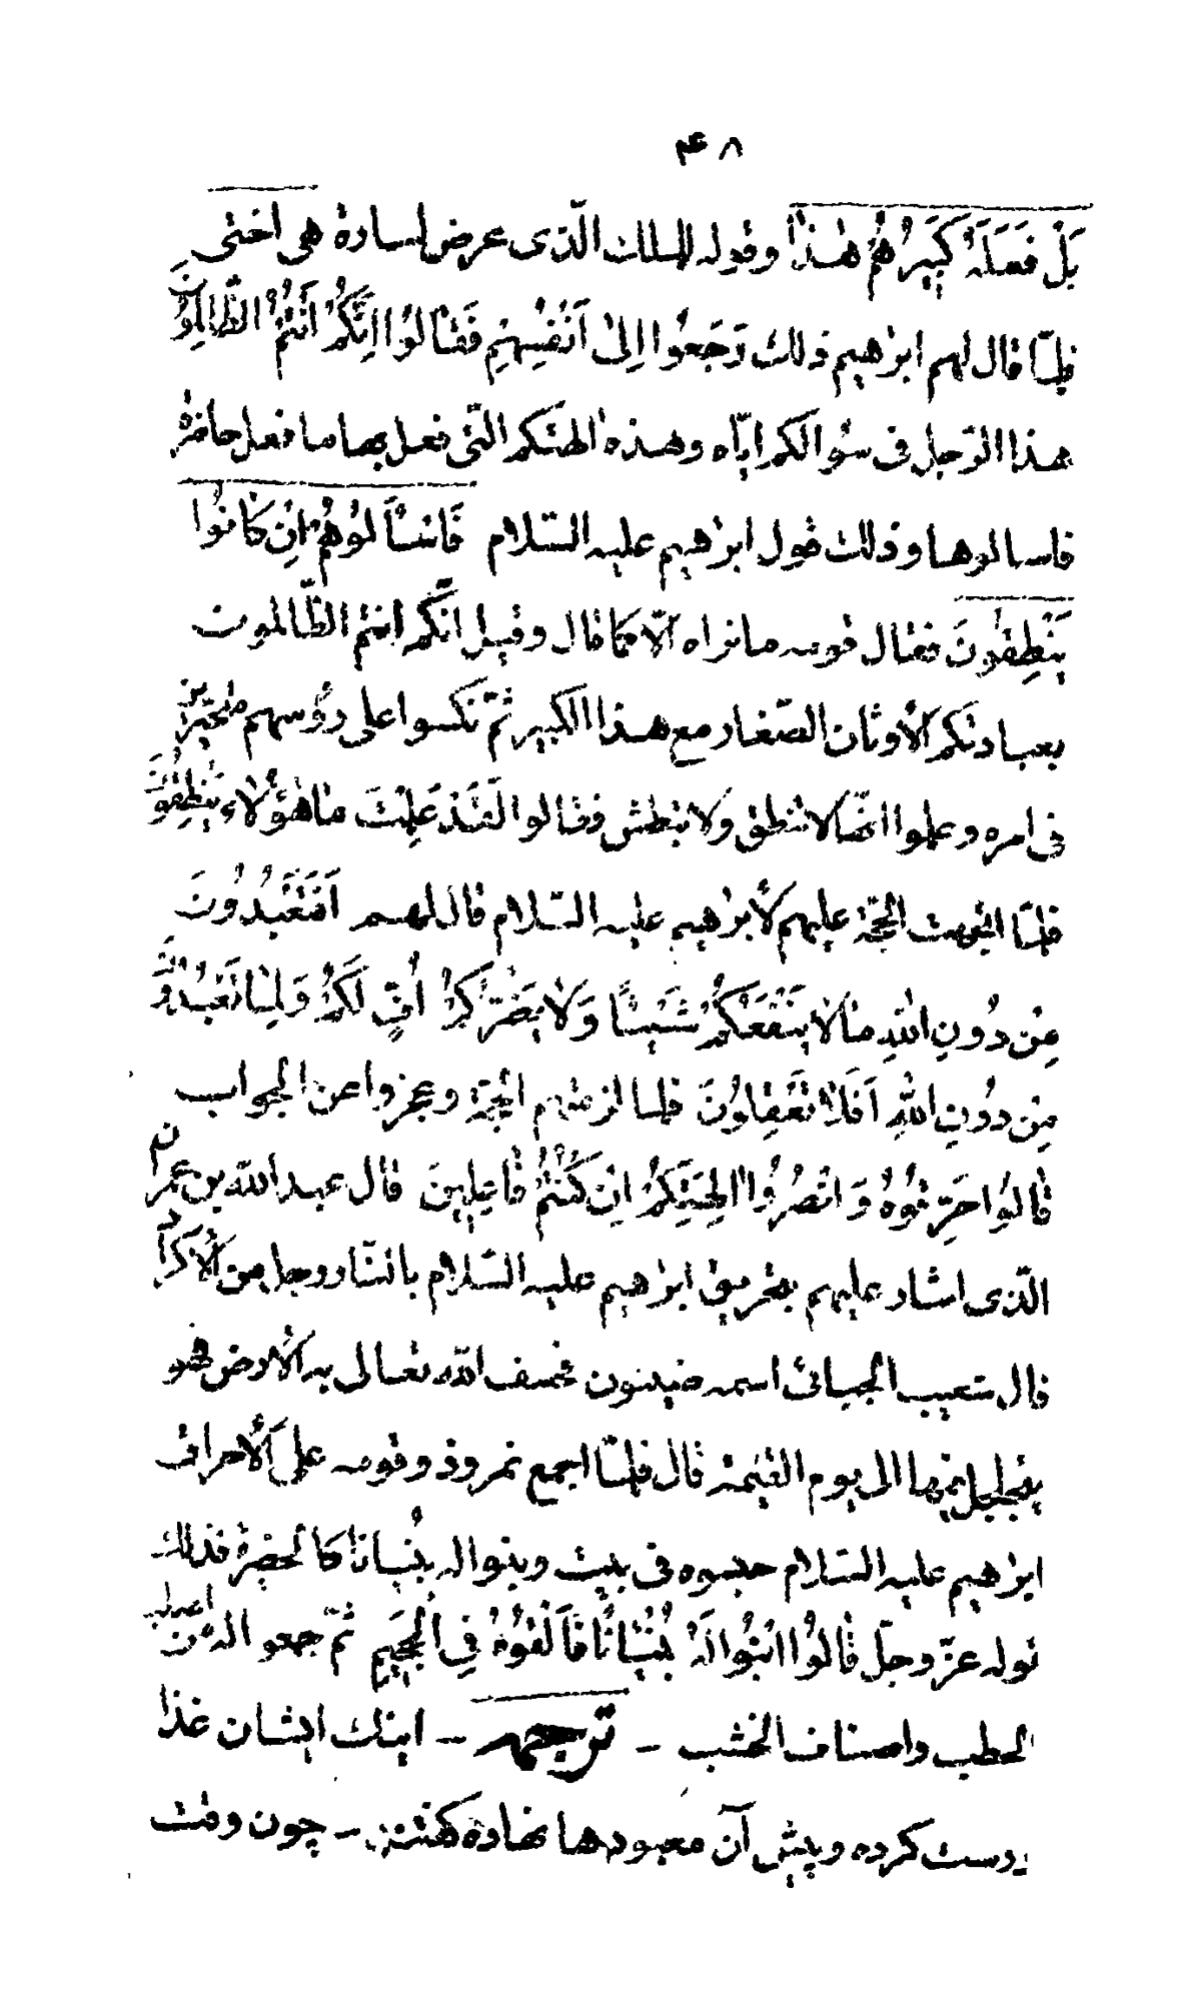 ۴۸
بَلْ فَعَلَهُ كَبِيرُهُمْ هٰذٰا وقوله للملك الّذى عرض لسارة هى اختى
فلمّا قال لهم ابرٰهيم ذلك رَجَعُوا اِلىٰ اَنْفُسِهِمْ فَقٰالُوا اِنَّكُمْ اَنْتُمُ الظّٰالِمُونَ
هذا الرّجل فى سؤالكم ايّاه وهذه الهتكم الّتى فعل بها ما فعل حاضرة
فاسالوها وذلك قول ابرٰهيم عليه السّلام فَاسْئَلُوهُمْ اِنْ كٰانُوا
يَنْطِقُونَ فقال قومه ما نراه الّا كما قال وقيل انّكم انتم الظّالمون
بعبادتكم الأوثان الصّغار مع هذا الكبير ثمّ نكسوا على رؤسهم متحيّرين
فى امره وعلموا انّها لا تنطق ولا تبطش فقالوا لَقَدْ عَلِمْتَ مٰا هٰؤُلٰاءِ يَنْطِقُونَ
فلمّا اتّجهت الحجّة عليهم لأبرٰهيم عليه السّلام قال لهم اَفَتَعْبُدُونَ
مِنْ دُونِ اللّٰهِ مٰا لٰا يَنْفَعُكُمْ شَيْئًا وَلٰا يَضُرُّكُمْ اُفٍّ لَكُمْ وَلِمٰا تَعْبُدُونَ
مِنْ دُونِ اللّٰهِ اَفَلٰا تَعْقِلُونَ فلما لزمتهم الحجّة وعجزوا عن الجواب
قٰالُوا حَرِّقُوهُ وَانْصُرُوا اٰلِهَتَكُمْ اِنْ كُنْتُمْ فٰاعِلِينَ قال عبدالله بن عمر انّ
الّذى اشار عليهم بتحريق ابرٰهيم عليه السّلام بالنّار رجل من الأكراد
قال شعيب الجبائى اسمه ضينون فخسف الله تعالى به الأرض فهو
يتجلجل فيها الى يوم القيٰمة قال فلمّا اجمع نمروذ وقومه على الأحراق
ابرٰهيم عليه السّلام حبسوه فى بيت وبنوا له بُنيانا كالحضيرة فذلك
قوله عزّ وجلّ قٰالُوا ابْنُوا لَهُ بُنْيٰانًا فَاَلْقُوهُ فِى الْجَحِيمِ ثمّ جمعوا له من اصلب
الحطب واصناف الخشب - ترجمه - اينك ايشان غذا
درست كرده وپيش آن معبودها نهاده گفتند - چون وقت